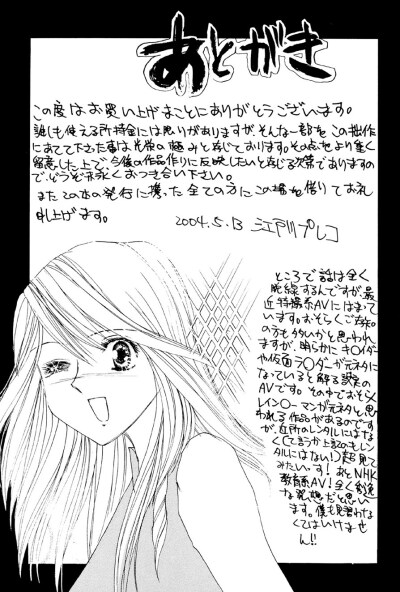 あとがき
この度はお買い上げまことにありがとうございます。
誰しも使える所持金には限りがありますが、そんな一部をこの拙作
にあてて下さった事は光栄の極みと存じております。その点をより重く
留意した上で、今後の作品作りに反映したいと存じる次第でありますの
で、どうぞ末永くおつき合い下さい。
またこの本の発行に携った全ての方にこの場を借りてお礼
申し上げます。
2004.5.13 江戸川プレコ
ところで話は全く
脱線するんですが、最
近特撮系AVにはまって
います。おそらくご存知
の方も多々いるかと思われ
ますが、明らかにキ○イダー
や仮面ラ○ダーが元ネタに
なっていると解る
AVです。その中でおそらく
レイン○ーマンが元ネタと思
われる作品があるのです
が、近所のレンタルにはな
く(て言うか上記のもレン
タルにはない!)超見て
みたいっす!あとNHK
教育系AV!全く斬新
な発想だと思い
ます。僕も見習わな
くてはいけませ
ん!!